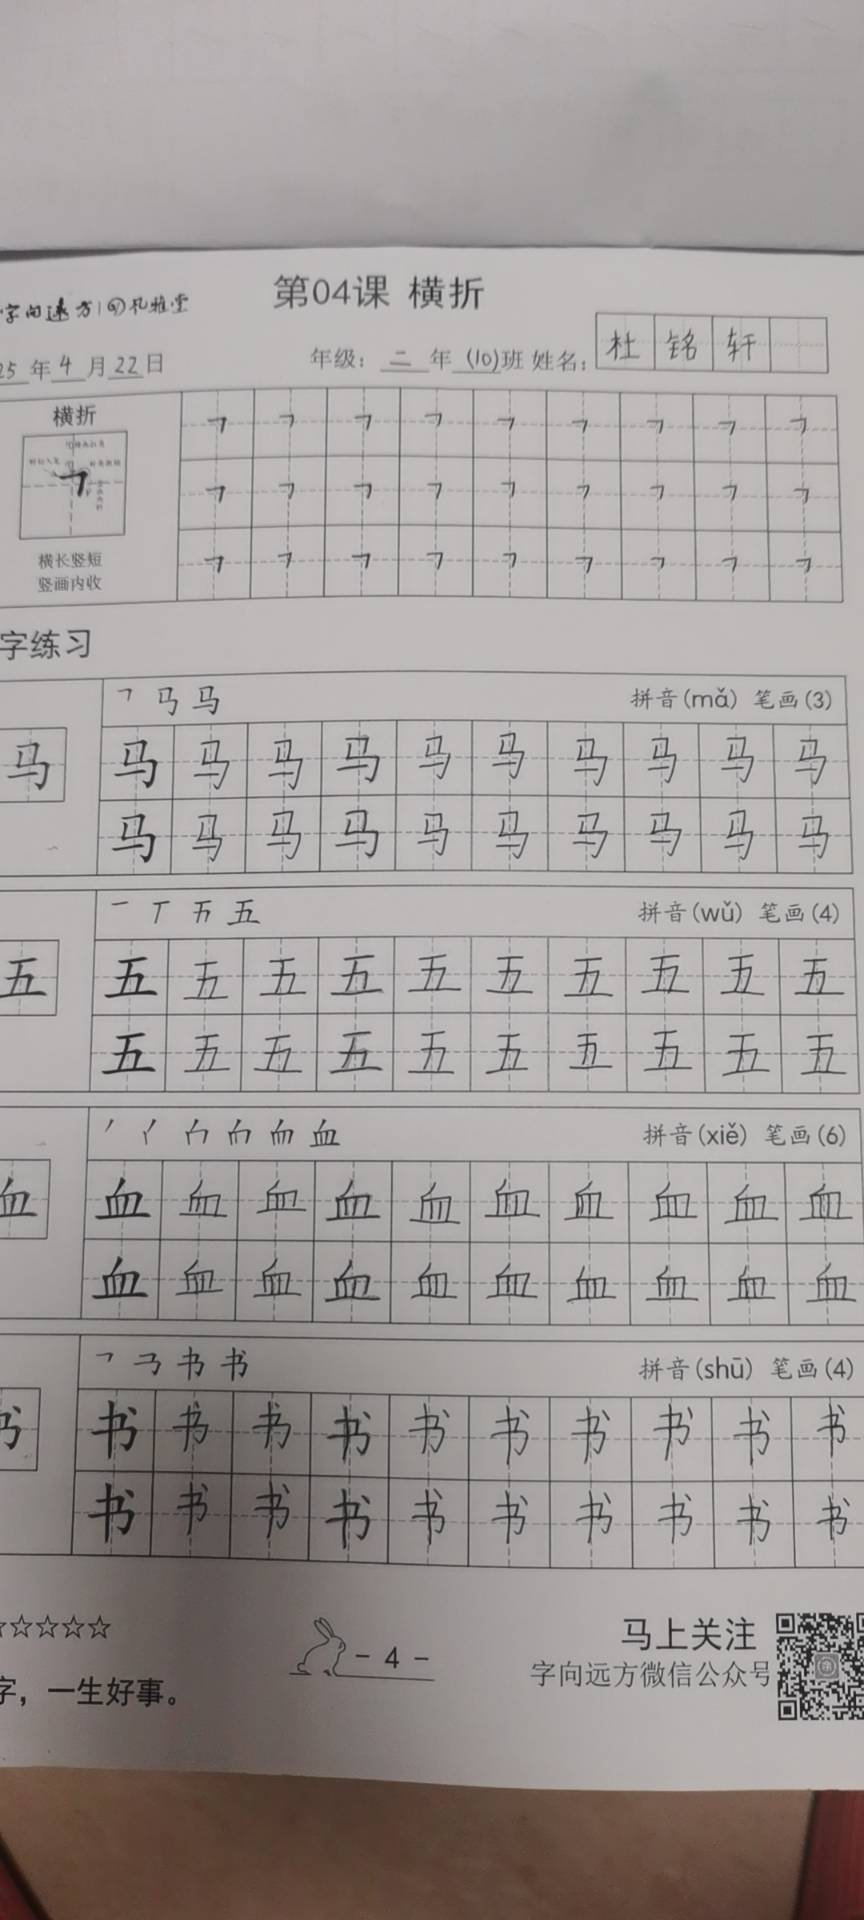 字向远方|回礼雅堂
第04课 横折
25年4月22日 年级：二年(10)班 姓名：杜铭轩
横折
横长竖短
竖画内收
字练习
㇕ 马 马 拼音(mǎ) 笔画(3)
马 马 马 马 马 马 马 马 马 马 马
马 马 马 马 马 马 马 马 马 马
一 丅 五 五 拼音(wǔ) 笔画(4)
五 五 五 五 五 五 五 五 五 五 五
五 五 五 五 五 五 五 五 五 五
血 拼音(xiě) 笔画(6)
血 血 血 血 血 血 血 血 血 血 血
血 血 血 血 血 血 血 血 血 血
书 拼音(shū) 笔画(4)
书 书 书 书 书 书 书 书 书 书 书
书 书 书 书 书 书 书 书 书 书
☆☆☆☆☆ 马上关注
- 4 -
字向远方微信公众号
字，一生好事。